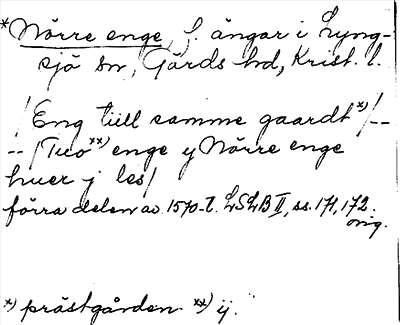 *Nörre enge, f. ängar i Lyng-
sjö sn, Gärds hd, Krist. l.
/Eng tiill samme gaardt x)/--
--/Tuo xx) enge y Nörre enge
huer j les/
förra delen av 1570-t. LSLB II, ss. 171, 172.
orig.
x) prästgården xx) ij.